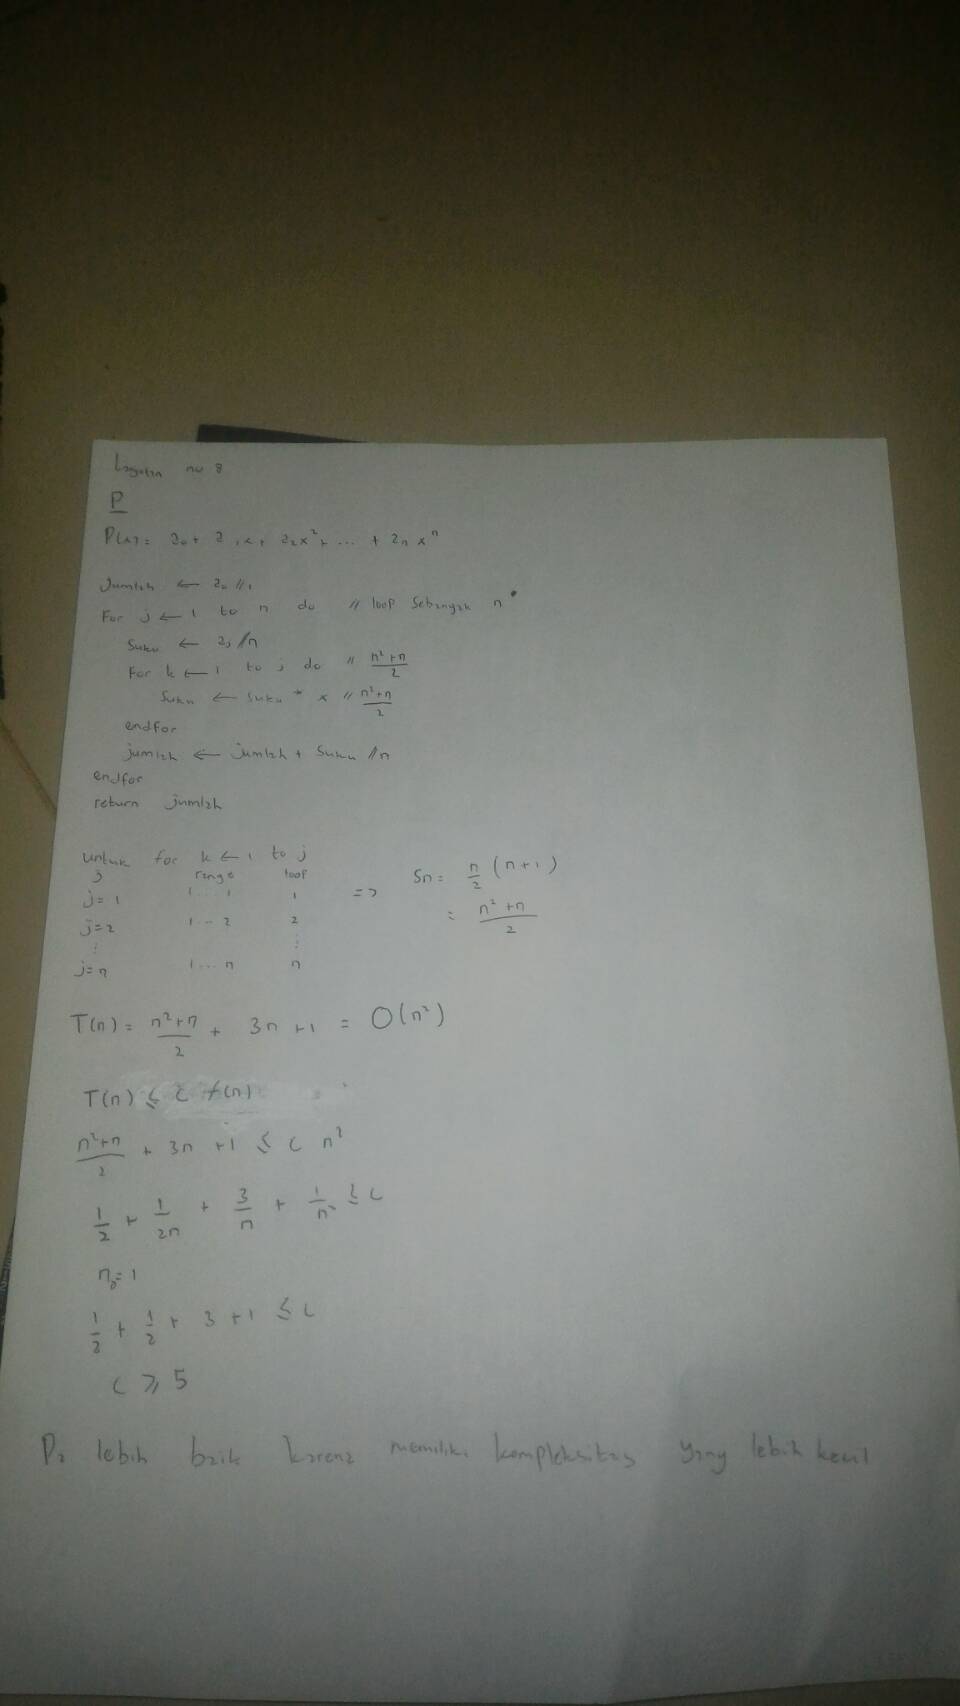 no 8
P
P(x) = a₀ + a₁x + a₂x² + ... + aₙxⁿ
Jumlah ← a₀ // 1
For j ← 1 to n do // loop Sebanyak n
Suku ← aj // n
For k ← 1 to j do // (n²+n)/2
Suku ← Suku * x // (n²+n)/2
endfor
jumlah ← jumlah + Suku // n
endfor
return jumlah
untuk for k ← 1 to j
j range loop
j=1 1...1 1 => Sn = n/2 (n+1)
j=2 1...2 2 = (n²+n)/2
⋮ ⋮
j=n 1...n n
T(n) = (n²+n)/2 + 3n + 1 = O(n²)
T(n) ≤ C f(n)
(n²+n)/2 + 3n + 1 ≤ C n²
1/2 + 1/2n + 3/n + 1/n² ≤ C
n₀ = 1
1/2 + 1/2 + 3 + 1 ≤ C
C ≥ 5
P₂ lebih baik karena memiliki kompleksitas yang lebih kecil